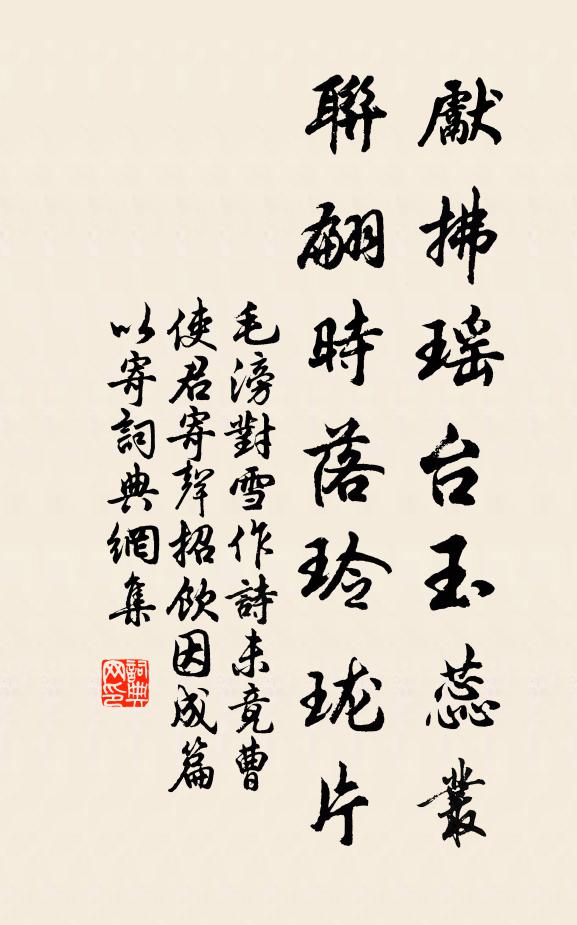 獻拂瑤台玉蕊叢
聯翩時落玲瓏片
毛滂對雪作詩未竟曹
使君寄聲招飲因成篇
以寄詞典網集
詞典
网印